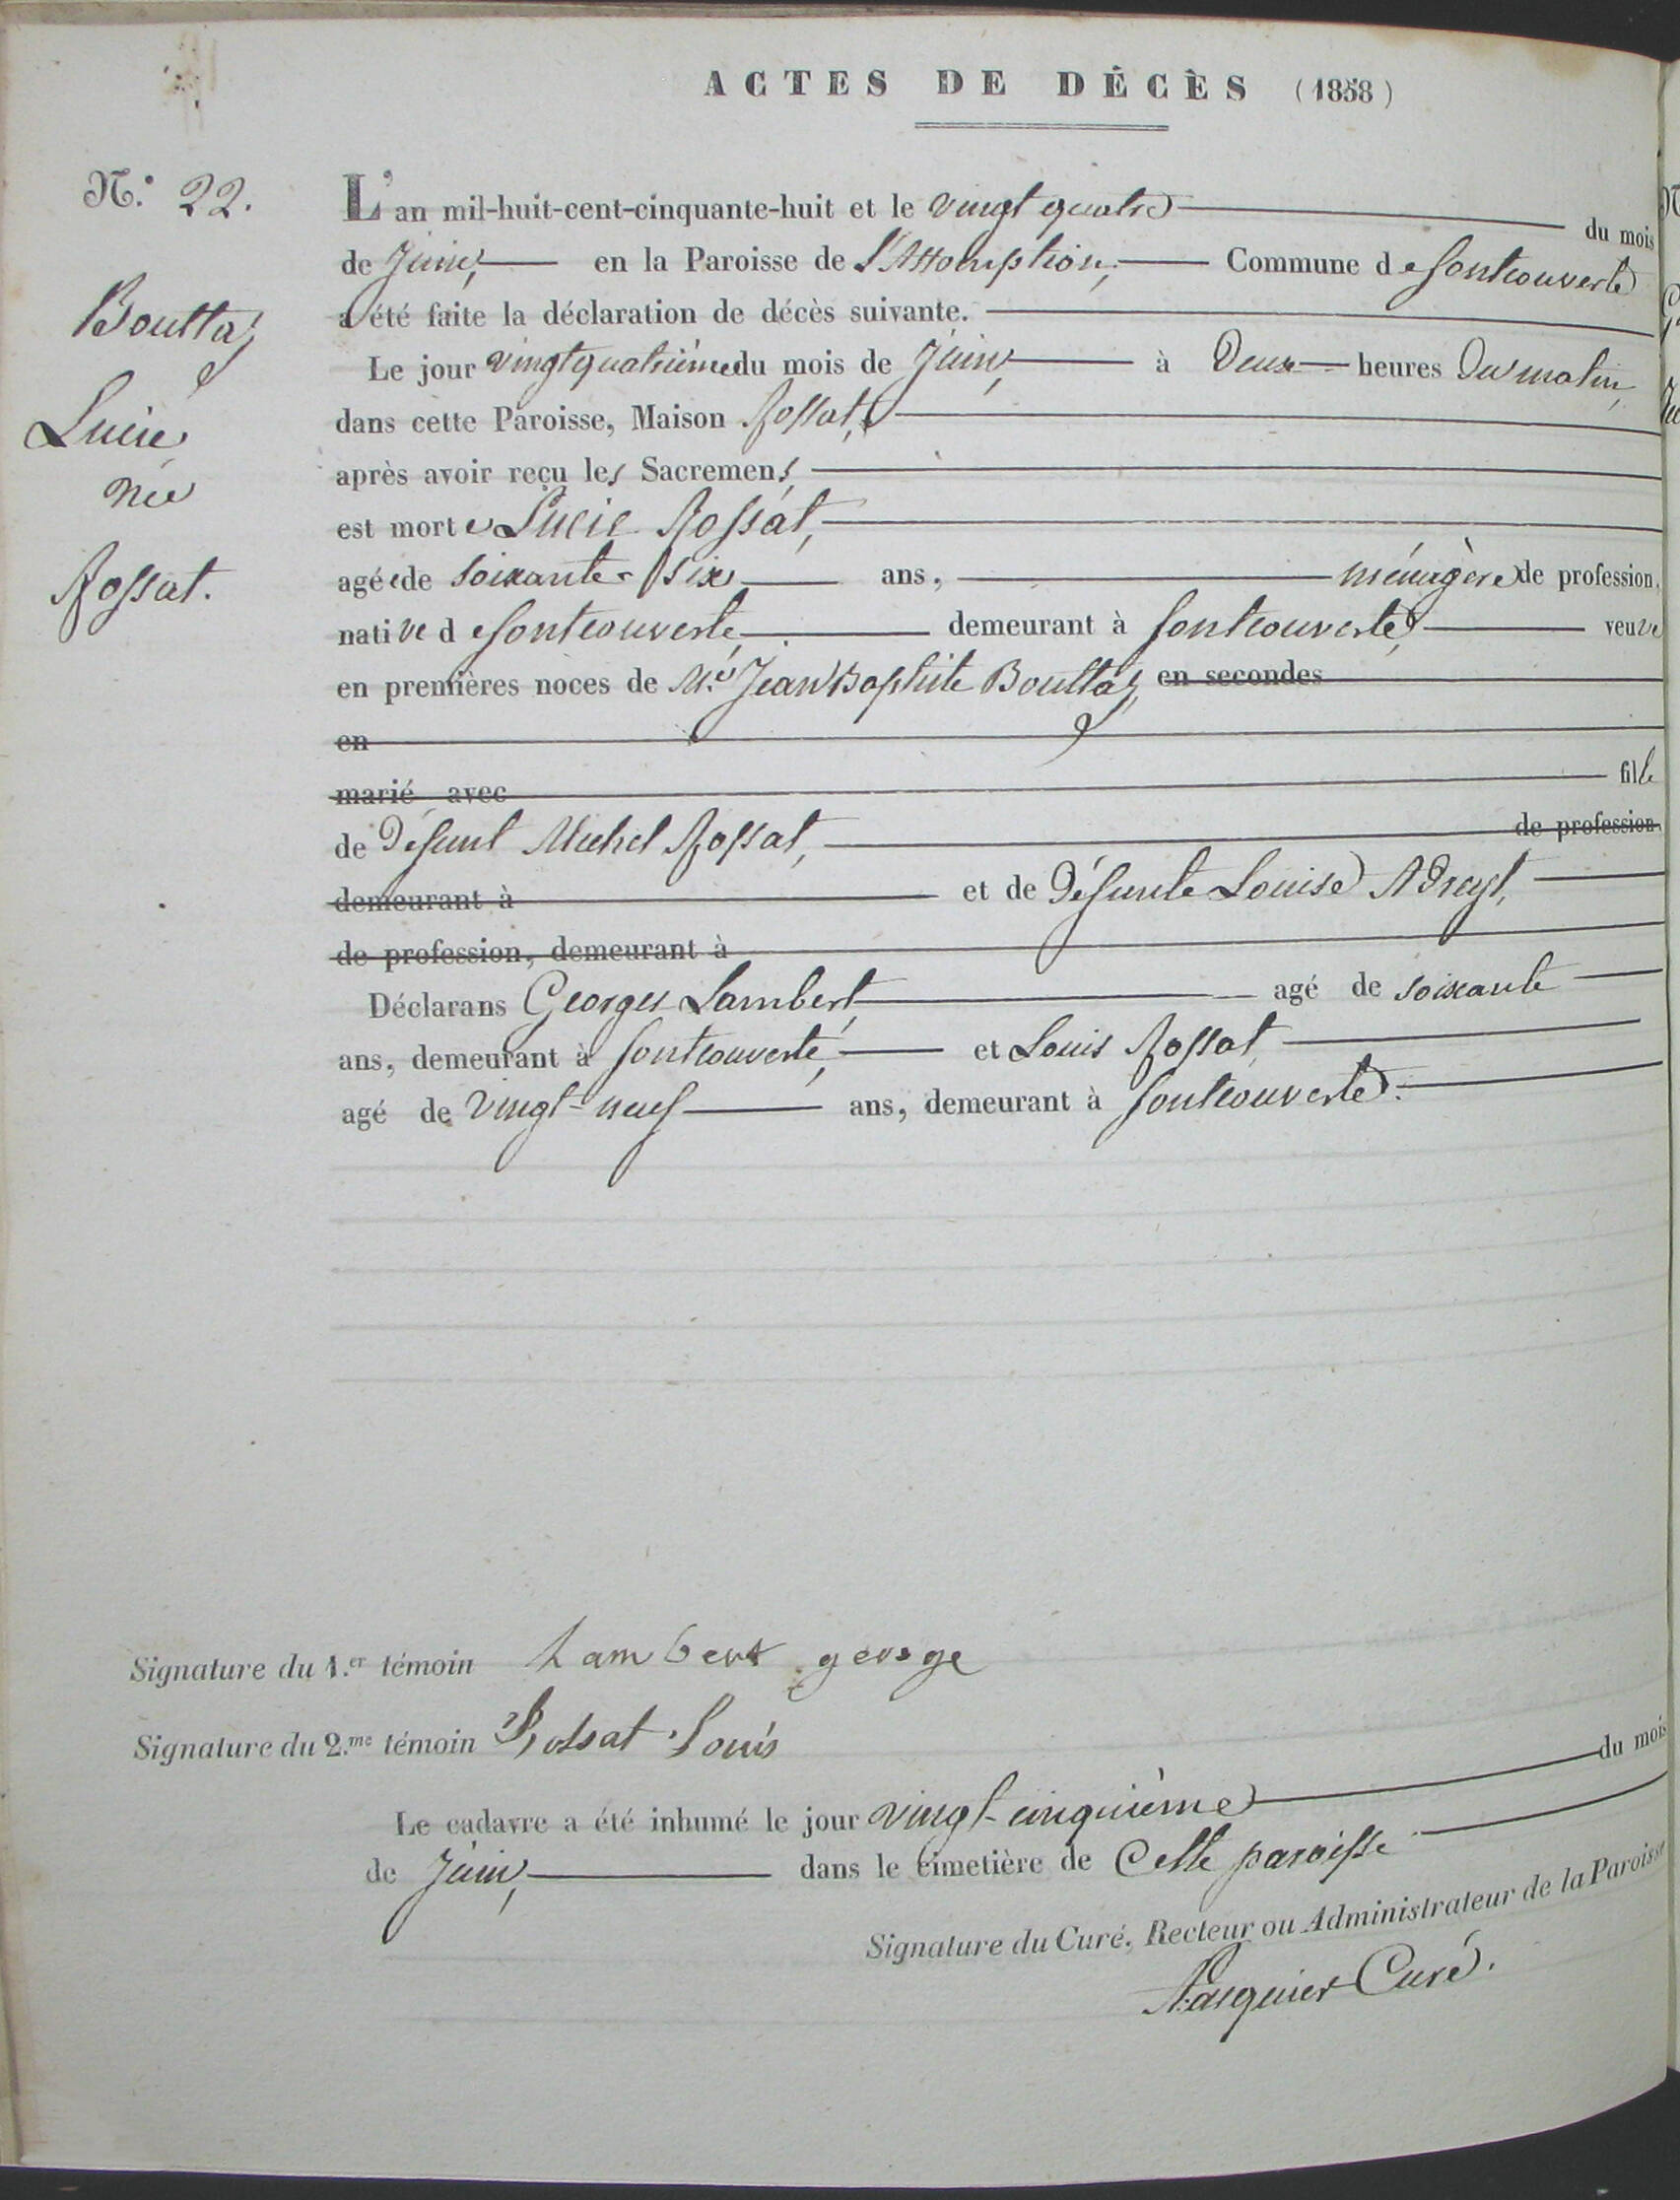 ACTES DE DÉCÈS (1858)
N.° 22.
Bouttaz
Lucie
née
Rossat.
L'an mil-huit-cent-cinquante-huit et le vingt quatre du mois
de Juin, en la Paroisse de l'Assomption, Commune de fontcouverte
a été faite la déclaration de décès suivante.
Le jour vingt quatrième du mois de Juin, à Deux heures Du matin,
dans cette Paroisse, Maison Rossat,
après avoir reçu les Sacremens,
est morte Lucie Rossat,
agée de soixante-six ans, ménagère de profession,
native de fontcouverte, demeurant à fontcouverte, veuve
en premières noces de Jean Baptiste Bouttaz, en secondes
en
marié avec fille
de Défunt Michel Rossat, de profession
demeurant à et de Défunte Louise Adreyt,
de profession, demeurant à
Déclarans Georges Lambert, agé de soixante
ans, demeurant à fontcouverte, et Louis Rossat,
agé de vingt-neuf ans, demeurant à fontcouverte.
Signature du 1.er témoin Lambert george
Signature du 2.me témoin Rossat Louis
Le cadavre a été inhumé le jour vingt-cinquième du mois
de Juin, dans le cimetière de Cette paroisse
Signature du Curé, Recteur ou Administrateur de la Paroisse
Curé.